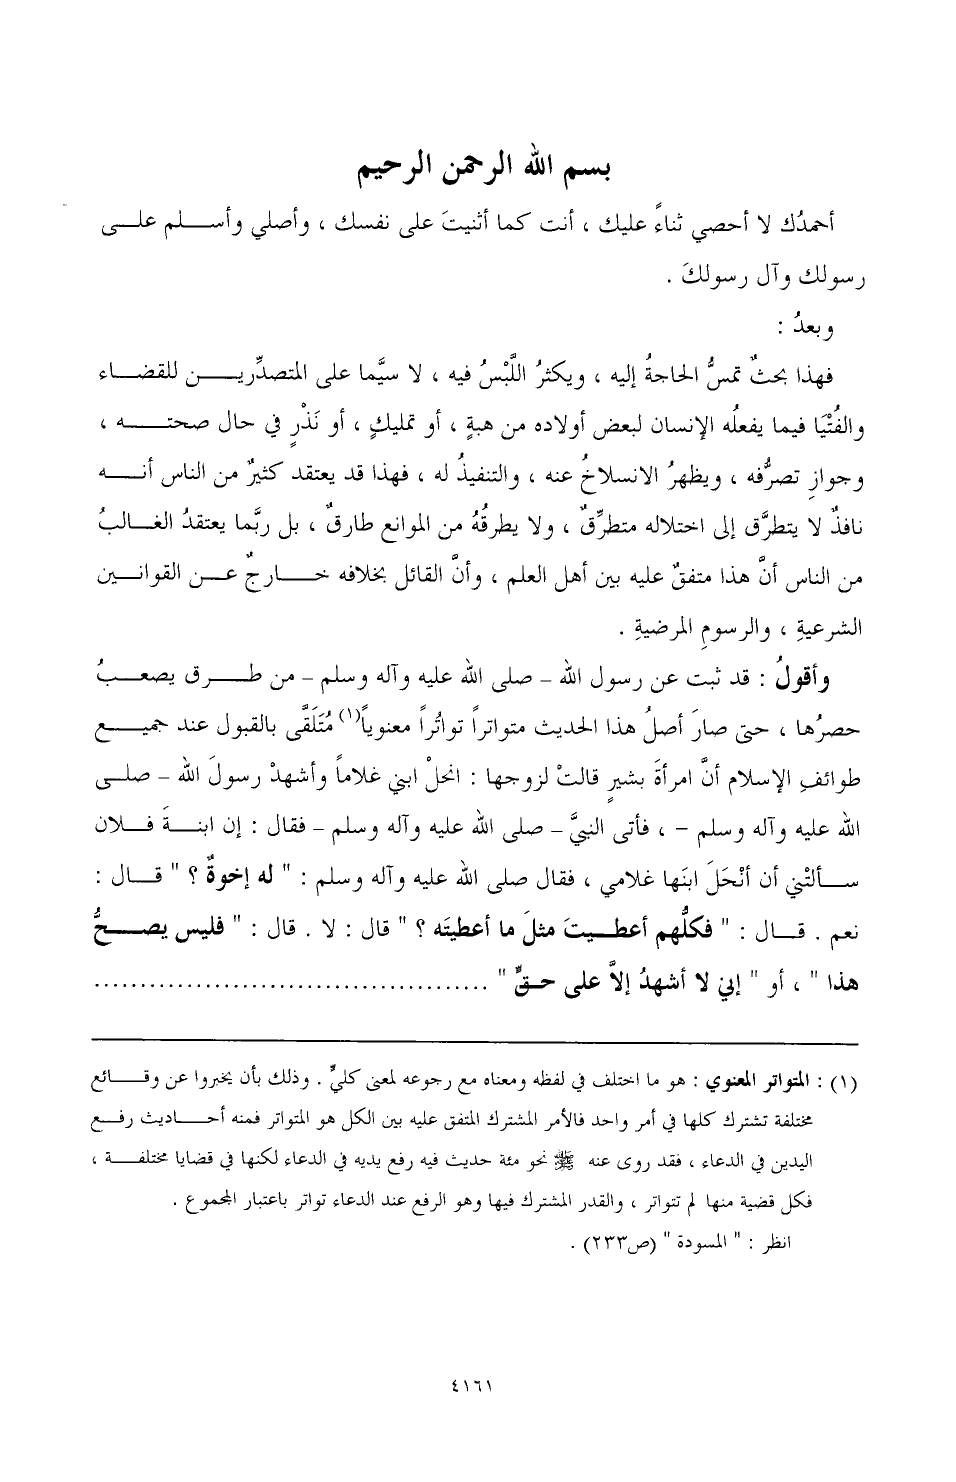 بسم الله الرحمن الرحيم
أحمدُك لا أحصي ثناءً عليك ، أنت كما أثنيتَ على نفسك ، وأصلي وأسلم على
رسولك وآل رسولكَ .
وبعدُ :
فهذا بحثٌ تمسُّ الحاجةُ إليه ، ويكثرُ اللَّبْسُ فيه ، لا سيَّما على المتصدِّرين للقضاء
والفُتْيَا فيما يفعلُه الإنسان لبعض أولاده من هبةٍ ، أو تمليكٍ ، أو نَذْرٍ في حال صحته ،
وجوازِ تصرُّفه ، ويظهرُ الانسلاخُ عنه ، والتنفيذُ له ، فهذا قد يعتقد كثيرٌ من الناس أنه
نافذٌ لا يتطرَّق إلى اختلاله متطرِّقٌ ، ولا يطرقُهُ من الموانع طارقٌ ، بل ربَّما يعتقدُ الغالبُ
من الناس أنَّ هذا متفقٌ عليه بين أهل العلم ، وأنَّ القائل بخلافه خارجٌ عن القوانين
الشرعيةِ ، والرسومِ المرضيةِ .
وأقولُ : قد ثبت عن رسول الله – صلى الله عليه وآله وسلم – من طرق يصعبُ
حصرُها ، حتى صارَ أصلُ هذا الحديث متواتراً تواتُراً معنوياً(١) مُتَلَقَّى بالقبول عند جميع
طوائفِ الإسلام أنَّ امرأةَ بشيرٍ قالتْ لزوجها : انحلْ ابني غلاماً وأشهدْ رسولَ الله – صلى
الله عليه وآله وسلم – ، فأتى النبيَّ – صلى الله عليه وآله وسلم – فقال : إن ابنةَ فلان
سألتْني أن أنْحَلَ ابنَها غلامي ، فقال صلى الله عليه وآله وسلم : " له إخوةٌ ؟ " قال :
نعم . قال : " فكلُّهم أعطيتَ مثلَ ما أعطيتَه ؟ " قال : لا . قال : " فليس يصحُّ
هذا " ، أو " إني لا أشهدُ إلاَّ على حقٍّ " ........................................
(١) : المتواتر المعنوي : هو ما اختلف في لفظه ومعناه مع رجوعه لمعنى كليٍّ . وذلك بأن يخبروا عن وقائع
مختلفة تشترك كلها في أمر واحد فالأمر المشترك المتفق عليه بين الكل هو المتواتر فمنه أحاديث رفع
اليدين في الدعاء ، فقد روى عنه ﷺ نحو مئة حديث فيه رفع يديه في الدعاء لكنها في قضايا مختلفة ،
فكل قضية منها لم تتواتر ، والقدر المشترك فيها وهو الرفع عند الدعاء تواتر باعتبار المجموع .
انظر : " المسودة " (ص٢٣٣) .
٤١٦١